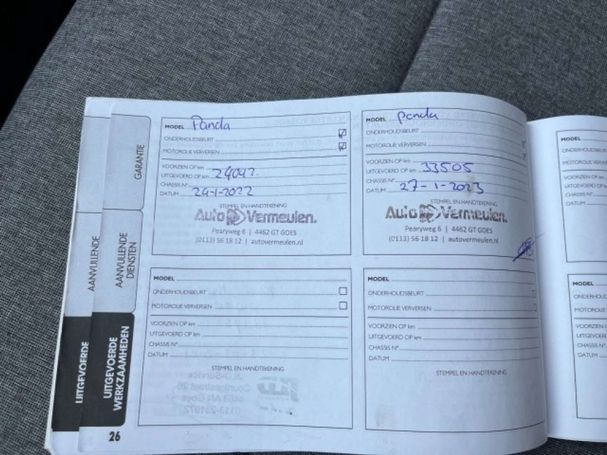 GARANTIE
AANVULLENDE
AANVULLENDE DIENSTEN
UITGEVOERDE
UITGEVOERDE WERKZAAMHEDEN
26
MODEL Panda
ONDERHOUDSBEURT
MOTOROLIE VERVERSEN
VOORZIEN OP km
UITGEVOERD OP km 24042
CHASSIS N°
DATUM 24-1-2022
STEMPEL EN HANDTEKENING
Auto Vermeulen.
Pearyweg 6 | 4462 GT GOES
(0113) 56 18 12 | autovermeulen.nl
MODEL panda
ONDERHOUDSBEURT
MOTOROLIE VERVERSEN
VOORZIEN OP km
UITGEVOERD OP km 33505
CHASSIS N°
DATUM 27-1-2023
STEMPEL EN HANDTEKENING
Auto Vermeulen.
Pearyweg 6 | 4462 GT GOES
(0113) 56 18 12 | autovermeulen.nl
MODEL
ONDERHOUDSBEURT
MOTOROLIE VERVERSEN
VOORZIEN OP km
UITGEVOERD OP km
CHASSIS N°
DATUM
STEMPEL EN HANDTEKENING
MODEL
ONDERHOUDSBEURT
MOTOROLIE VERVERSEN
VOORZIEN OP km
UITGEVOERD OP km
CHASSIS N°
DATUM
STEMPEL EN HANDTEKENING
MODEL
ONDERHOUD
MOTOROLIE
VOORZIEN
UITGEVOERD
CHASSIS N°
DATUM
MODEL
ONDERHO
MOTORO
VOORZIEN
UITGEVOE
CHASSIS
DATUM